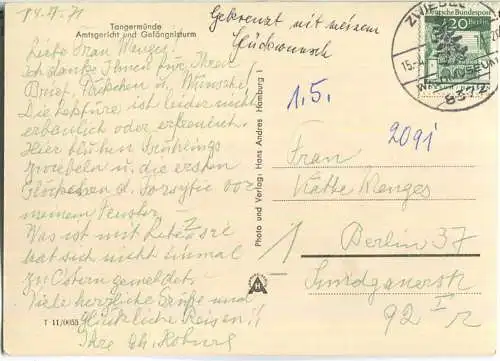 14. 4. 71
Tangermünde
Amtsgericht und Gefängnisturm
Gekreuzt mit meinem
Glückwunsch
Liebe Frau Menges!
Ich danke Ihnen für Ihren
Brief, Päckchen u. Wünsche!
Die Lektüre ist leider nicht
erbaulich oder erfreulich.
Hier blühen Frühlings
zwiebeln und die ersten
Glöckchen d. Forsytie vor
meinem Fenster.
Was ist mit
hat sich nicht einmal
zu Ostern gemeldet.
Viele herzliche Grüße und
glückliche Reisen!!
Ihre Ch. Hoburg
T 11/0655
Photo und Verlag: Hans Andres Hamburg 1
ZWIESEL
15.-4.
Deutsche Bundespost
20 Berlin
1.5.
2091
Frau
Käthe Menges
1 Berlin 37
92